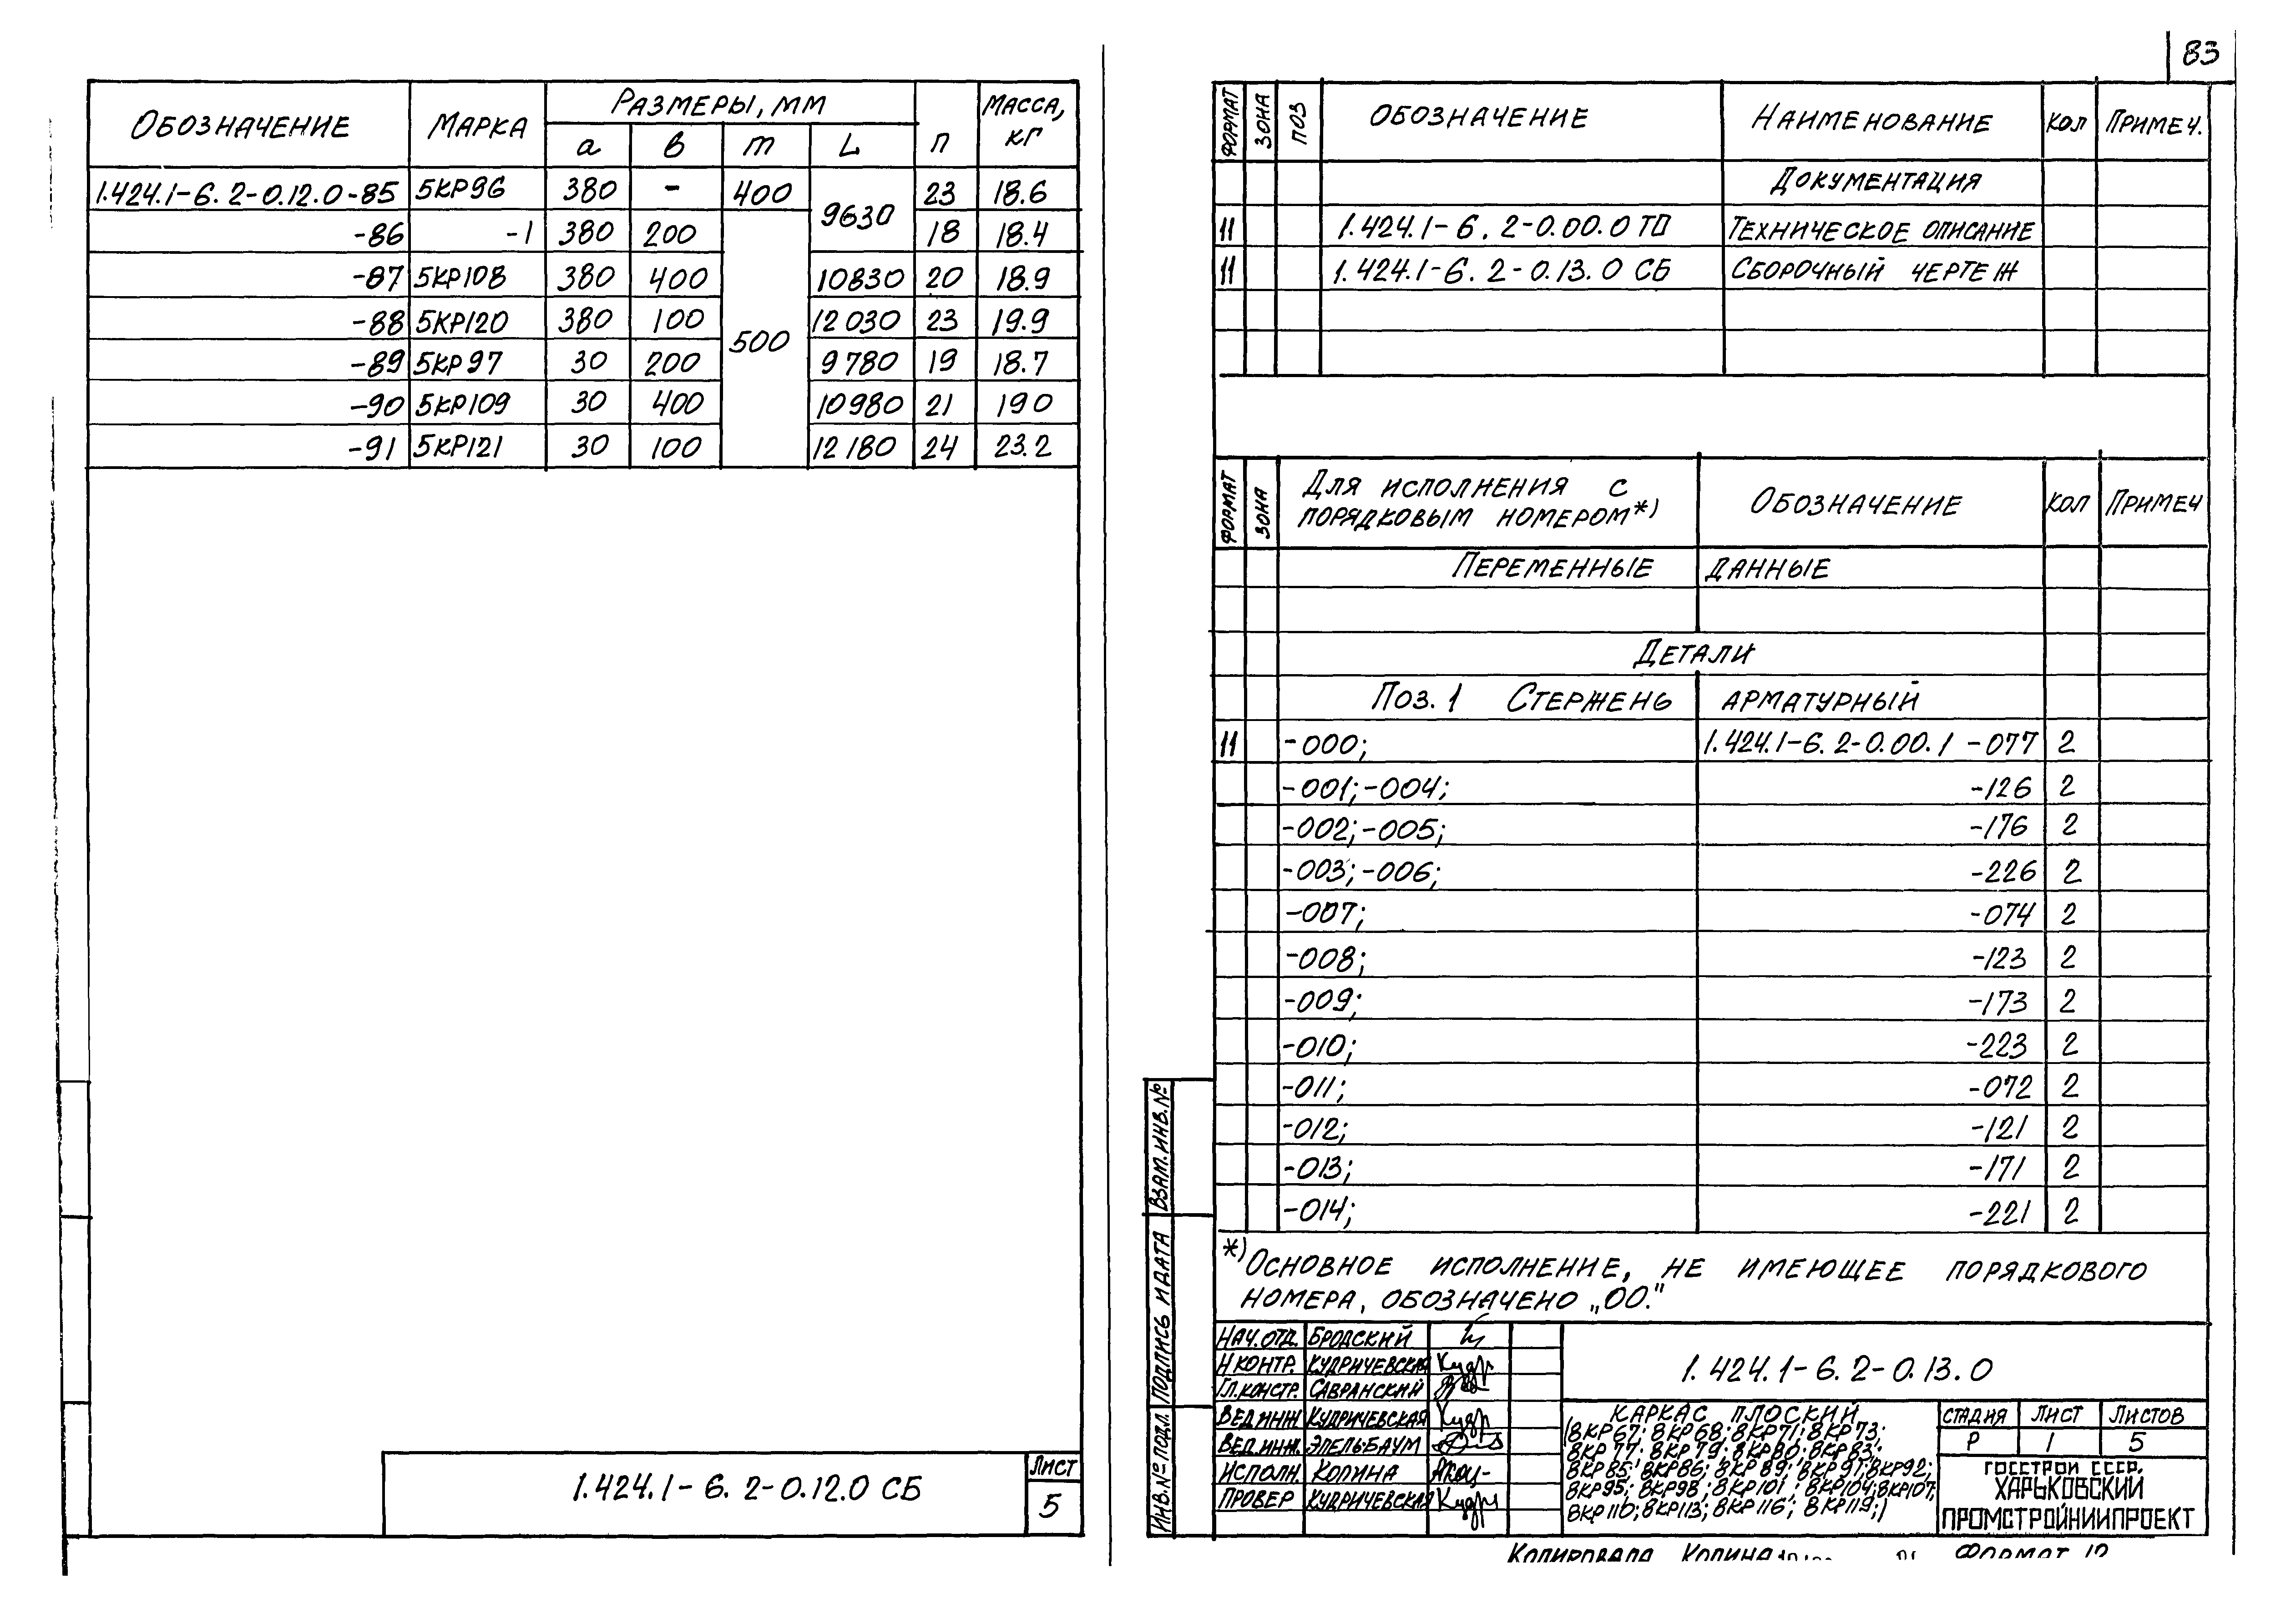 83
ОБОЗНАЧЕНИЕ МАРКА РАЗМЕРЫ, ММ п МАССА, КГ
а в m L
1.424.1-6. 2-0.12.0-85 5КР96 380 - 400 9630 23 18.6
-86 -1 380 200 500 18 18.4
-87 5КР108 380 400 10830 20 18.9
-88 5КР120 380 100 12030 23 19.9
-89 5КР97 30 200 9780 19 18.7
-90 5КР109 30 400 10980 21 190
-91 5КР121 30 100 12180 24 23.2
1.424.1-6. 2-0.12.0 СБ
ЛИСТ
5
ФОРМАТ ЗОНА ПОЗ ОБОЗНАЧЕНИЕ НАИМЕНОВАНИЕ КОЛ ПРИМЕЧ.
ДОКУМЕНТАЦИЯ
11 1.424.1-6. 2-0.00.0 ТО ТЕХНИЧЕСКОЕ ОПИСАНИЕ
11 1.424.1-6. 2-0.13.0 СБ СБОРОЧНЫЙ ЧЕРТЕЖ
ФОРМАТ ЗОНА ДЛЯ ИСПОЛНЕНИЯ С ПОРЯДКОВЫМ НОМЕРОМ*) ОБОЗНАЧЕНИЕ КОЛ ПРИМЕЧ
ПЕРЕМЕННЫЕ ДАННЫЕ
ДЕТАЛИ
ПОЗ. 1 СТЕРЖЕНЬ АРМАТУРНЫЙ
11 -000; 1.424.1-6. 2-0.00.1 -077 2
-001; -004; -126 2
-002; -005; -176 2
-003; -006; -226 2
-007; -074 2
-008; -123 2
-009; -173 2
-010; -223 2
-011; -072 2
-012; -121 2
-013; -171 2
-014; -221 2
*) ОСНОВНОЕ ИСПОЛНЕНИЕ, НЕ ИМЕЮЩЕЕ ПОРЯДКОВОГО
НОМЕРА, ОБОЗНАЧЕНО „00."
ВЗАМ. ИНВ. №
ПОДПИСЬ И ДАТА
ИНВ. № ПОДЛ.
НАЧ. ОТД. БРОДСКИЙ
Н КОНТР. КУДРИЧЕВСКАЯ Кудр
ГЛ. КОНСТР. САВРАНСКИЙ
ВЕД ИНЖ КУДРИЧЕВСКАЯ Кудр
ВЕД. ИНЖ. ЭПЕЛЬБАУМ
ИСПОЛН. КОПИНА
ПРОВЕР КУДРИЧЕВСКАЯ Кудр
1.424.1-6. 2-0.13.0
КАРКАС ПЛОСКИЙ
(8КР67; 8КР68; 8КР71; 8КР73;
8КР77; 8КР79; 8КР80; 8КР83;
8КР85; 8КР86; 8КР89; 8КР91; 8КР92;
8КР95; 8КР98; 8КР101; 8КР104; 8КР107;
8КР110; 8КР113; 8КР116; 8КР119;)
СТАДИЯ ЛИСТ ЛИСТОВ
Р 1 5
ГОССТРОЙ СССР.
ХАРЬКОВСКИЙ
ПРОМСТРОЙНИИПРОЕКТ
КОПИРОВАЛА КОПИНА ФОРМАТ 12